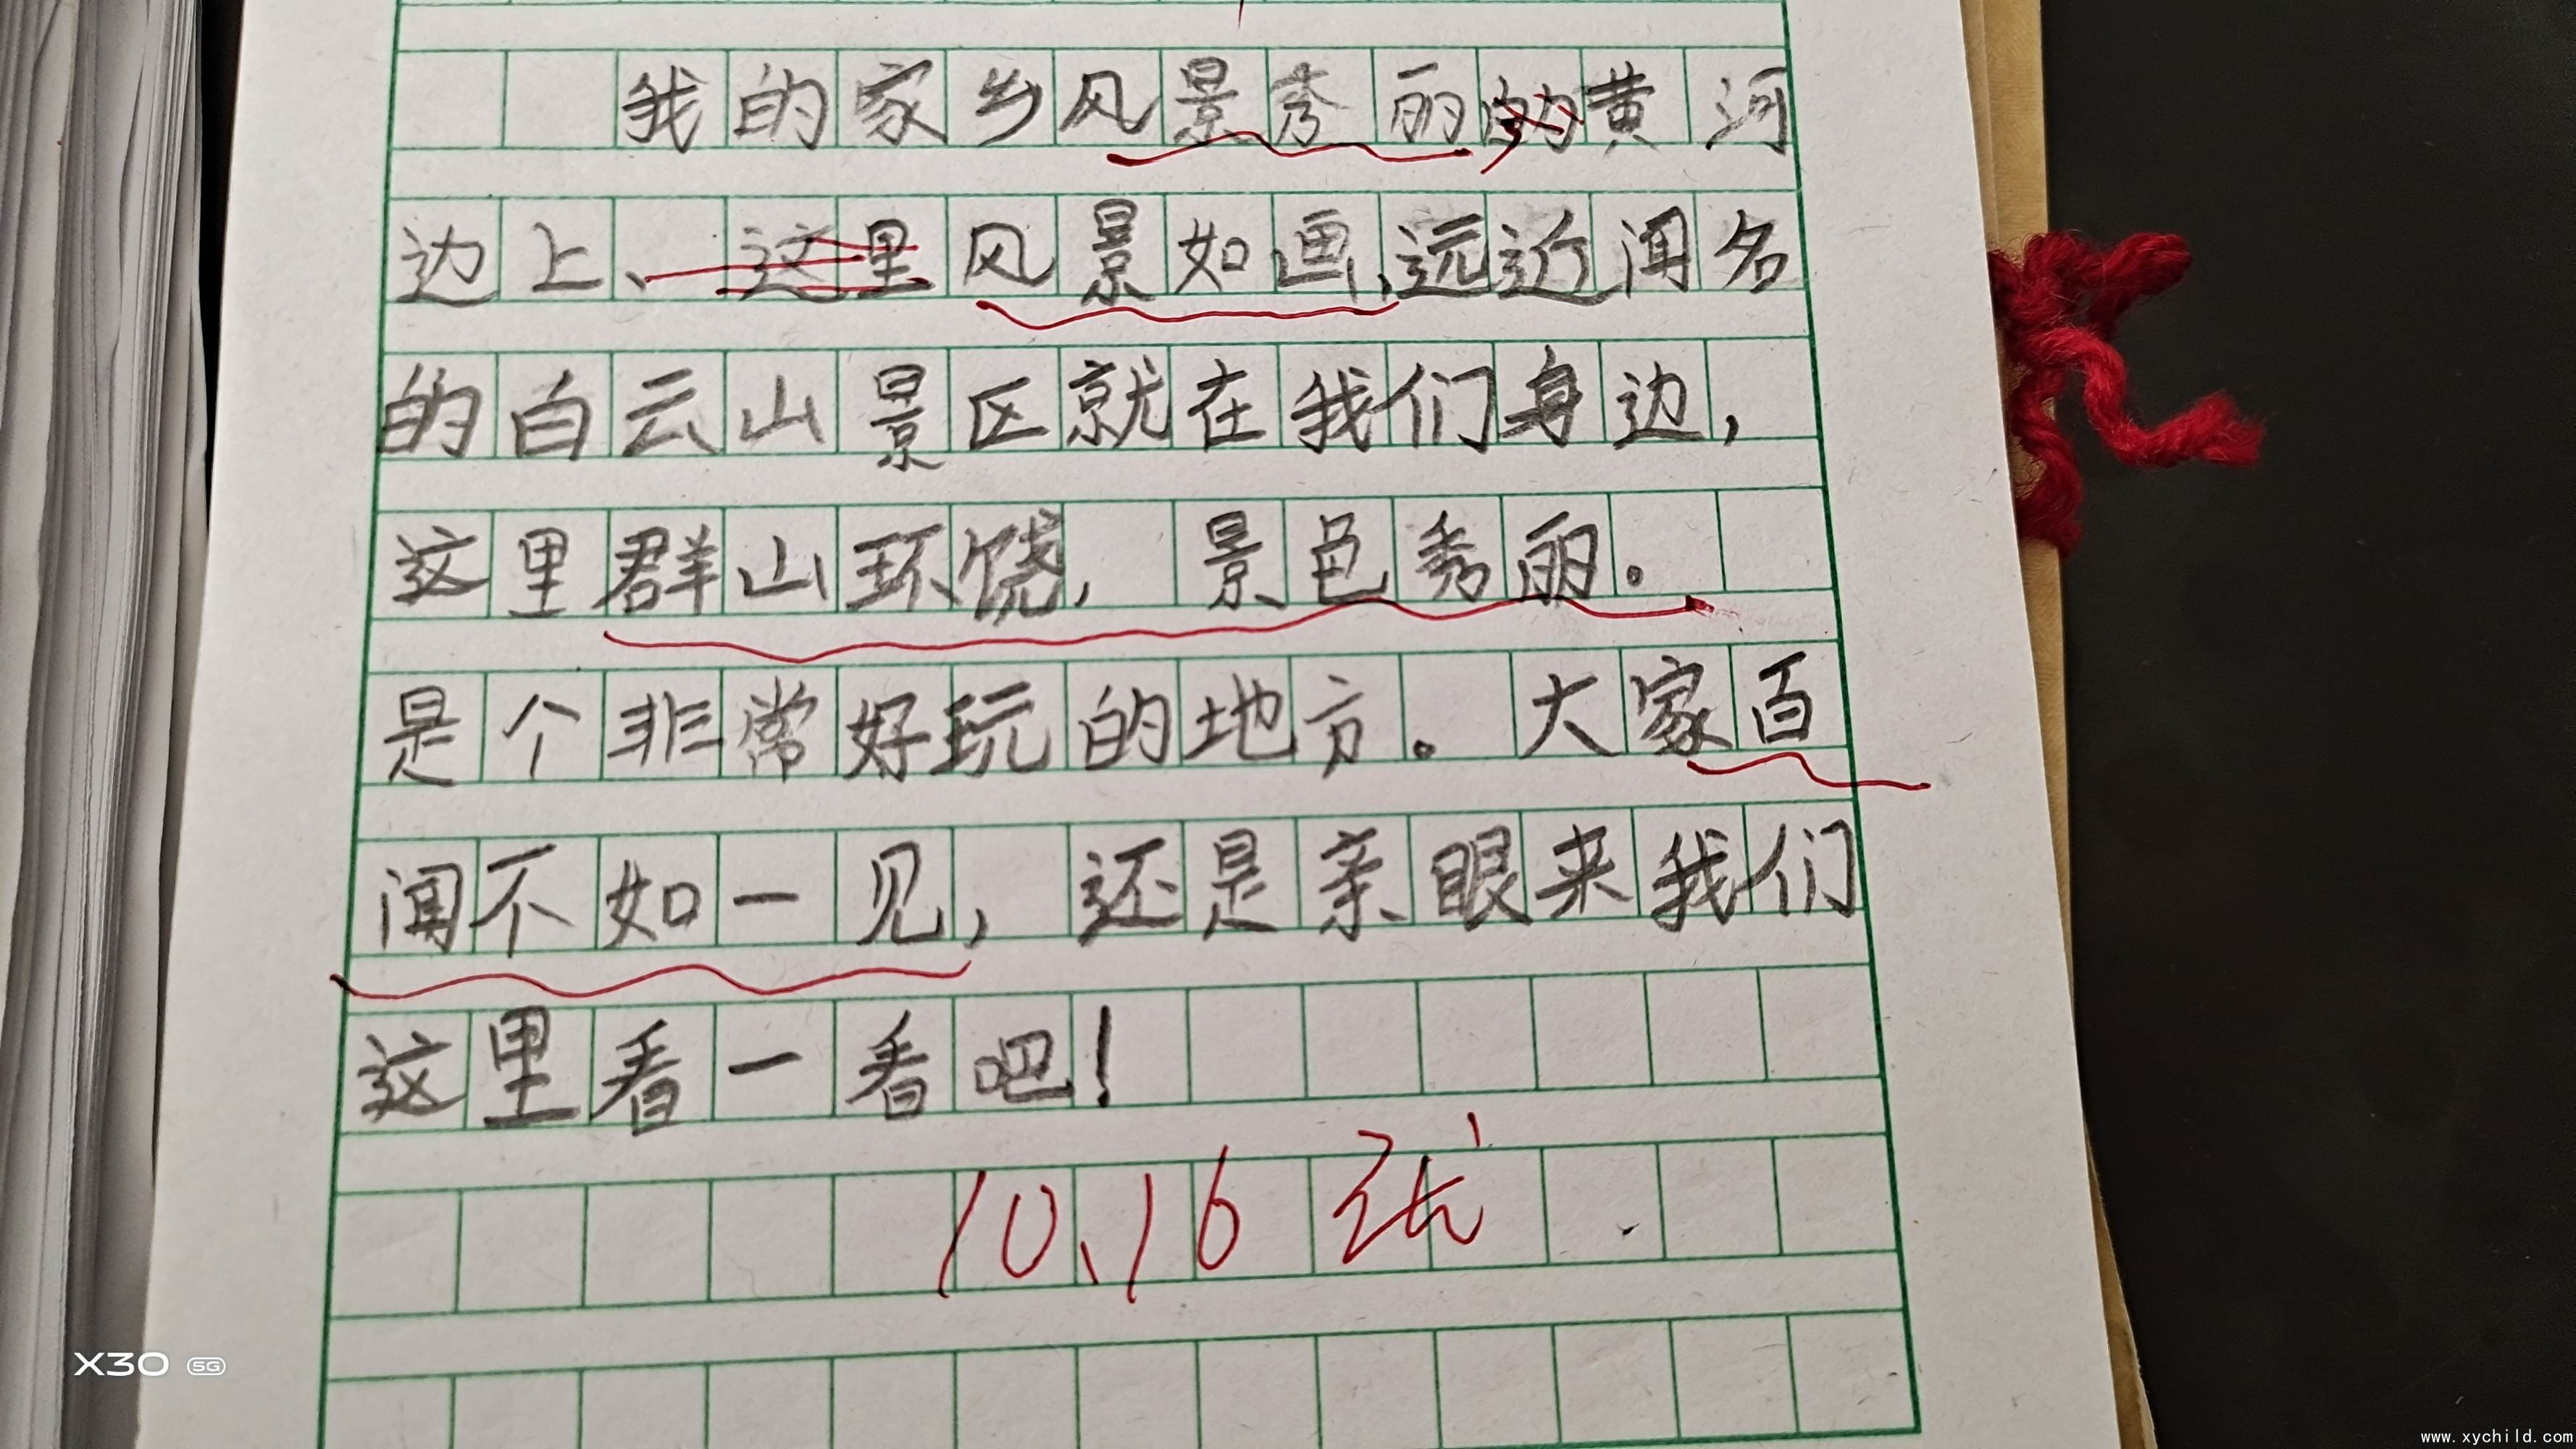 我的家乡风景秀丽的黄河
边上、这里风景如画,远近闻名
的白云山景区就在我们身边,
这里群山环饶,景色秀丽。
是个非常好玩的地方。大家百
闻不如一见,还是亲眼来我们
这里看一看吧!
10.16
X30 5G
www.xychild.com